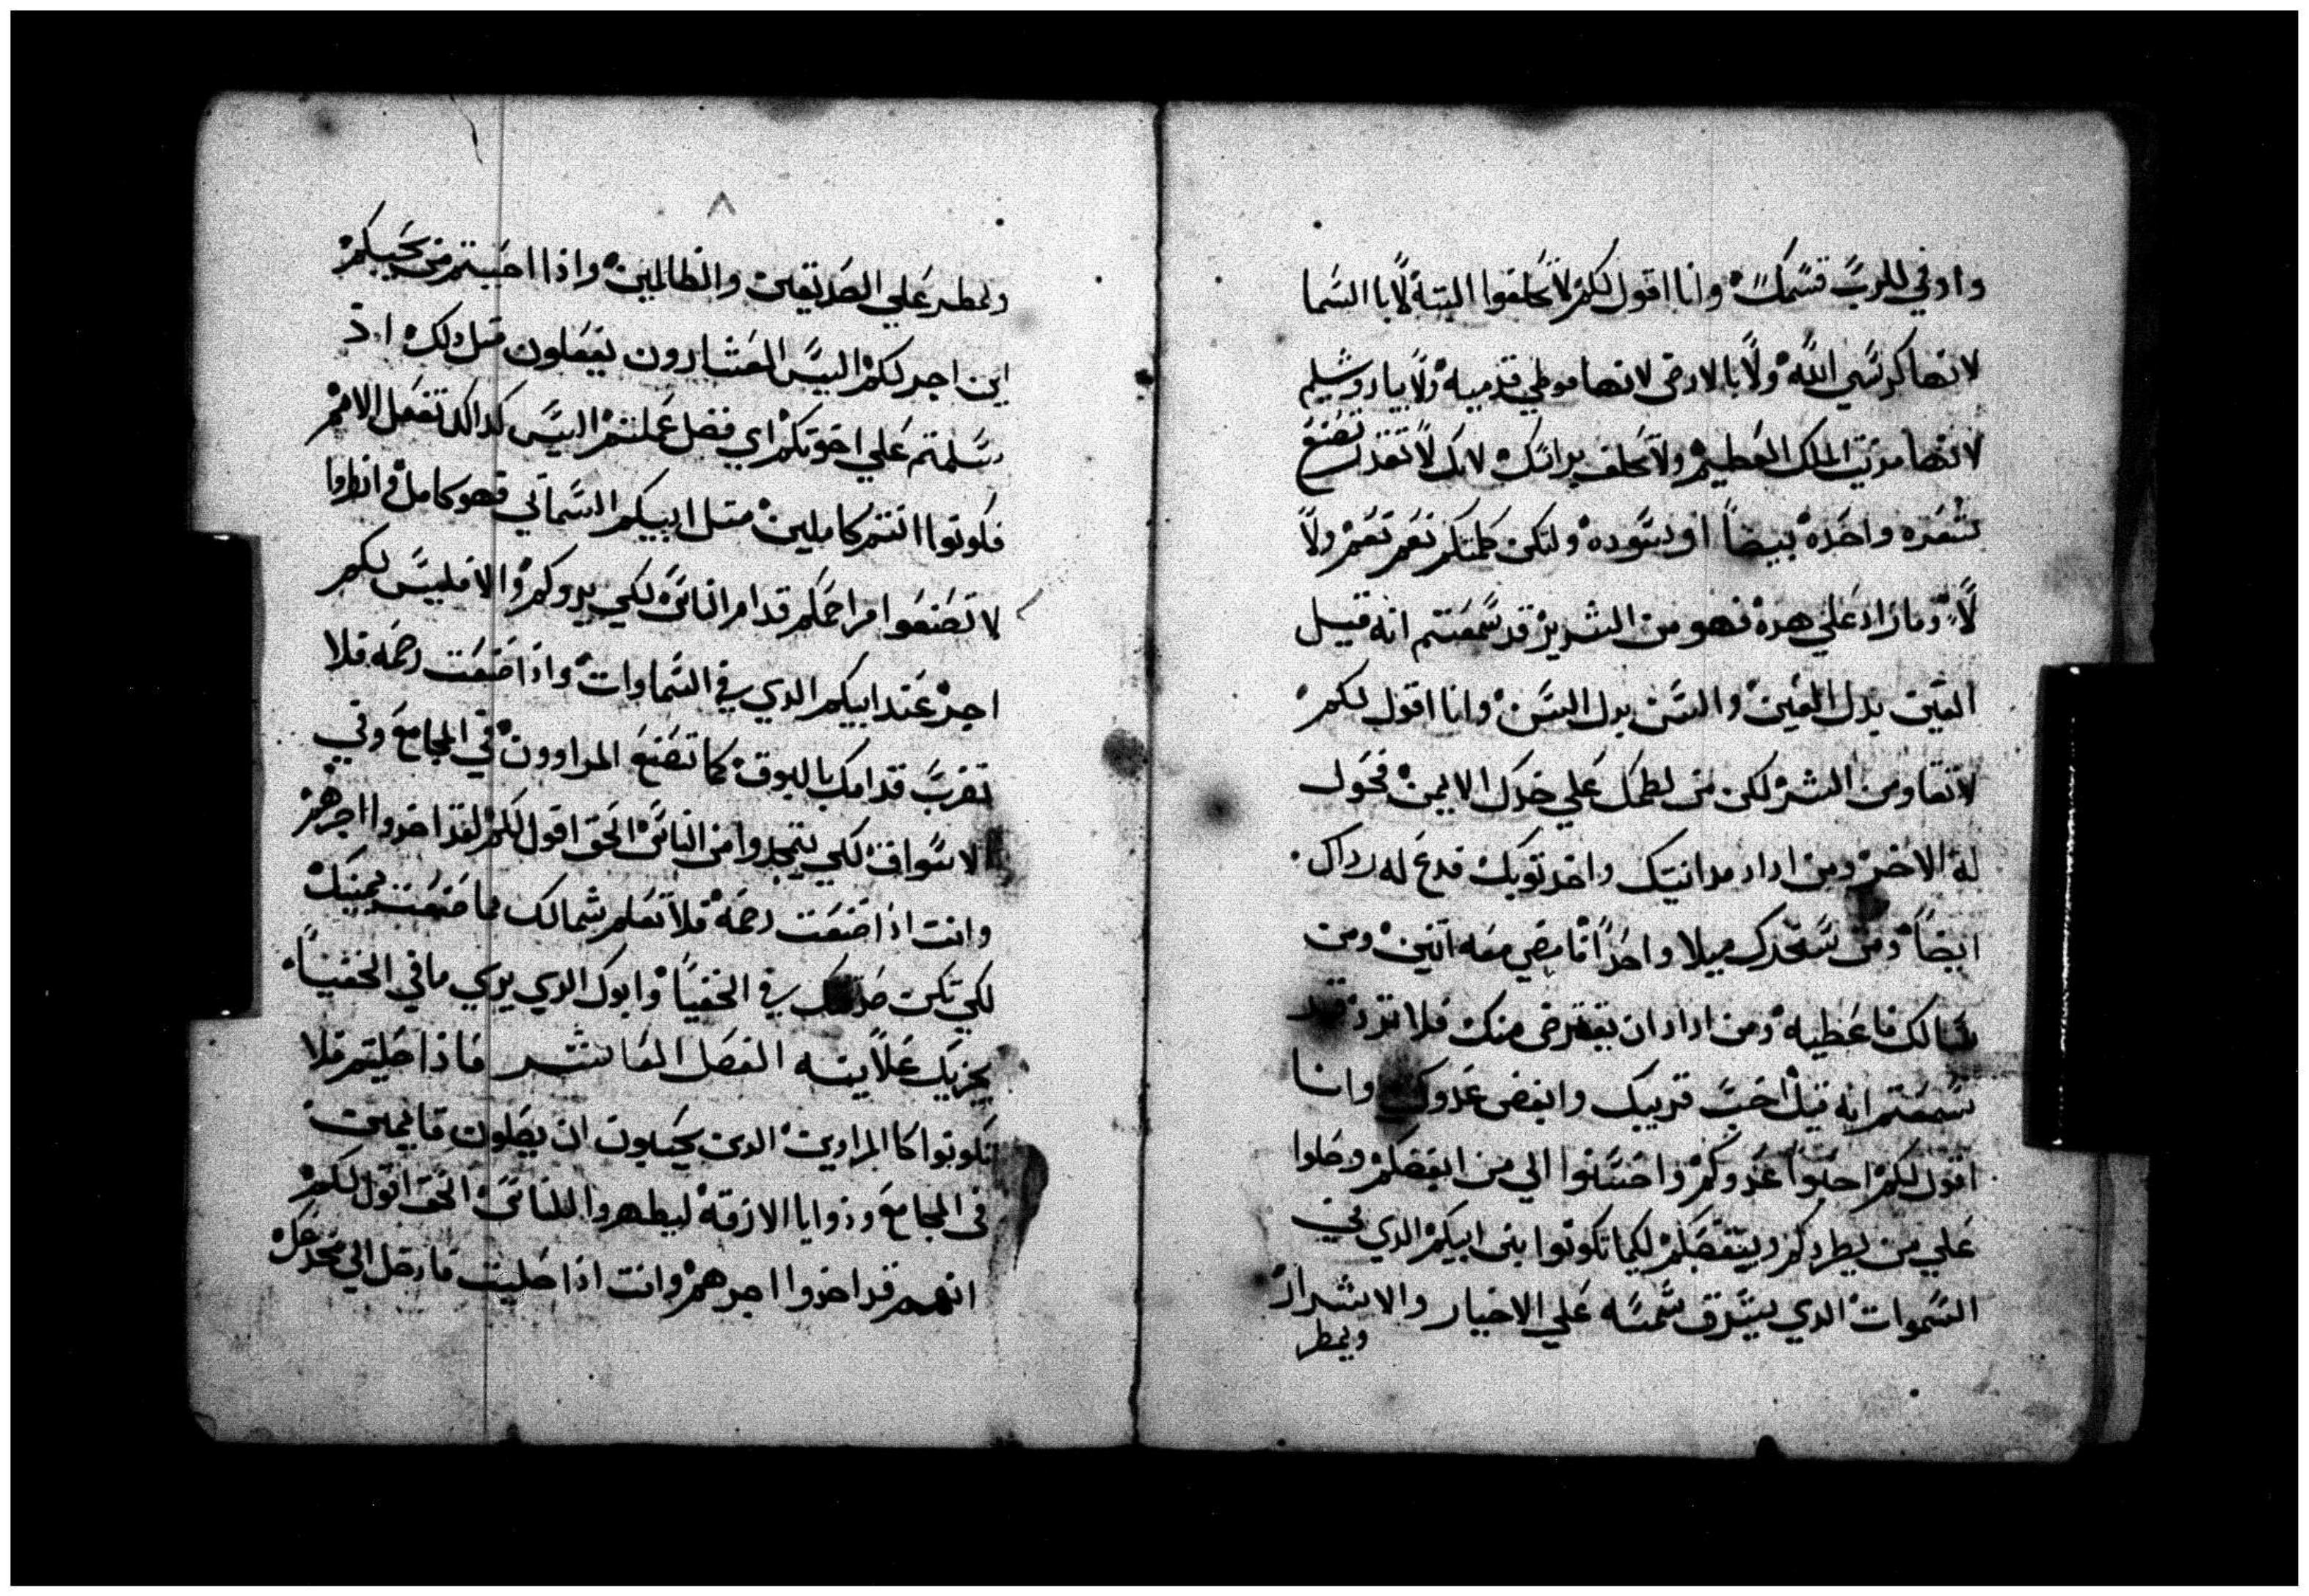 واوفي للرب قسمك وانا اقول لكم لا تحلفوا البتة لا با السما
لانها كرسي الله ولا با الارض لانها موطي قدميه ولا بياروشليم
لانها مدينة الملك العظيم ولا تحلف براسك لانك لا تقدر تصنع
شعره واحده بيضا او سوده ولتكن كلمتكم نعم نعم ولا
لا وما زاد علي هده فهو من الشرير قد سمعتم انه قيل
العين بدل العين والسن بدل السن وانا اقول لكم
لا تقاومن الشر لكن من لطمك علي خدك الايمن فحول
له الاخر ومن اراد مدانيتك واخد توبك فدع له رداك
ايضا ومن سخرك ميلا واحدا فامضي معه اتنين ومن
سالك فاعطيه ومن اراد ان يقترض منك فلا ترد قد
سمعتم انه قيل احب قريبك وابغض عدوك وانا
اقول لكم احبوا عدوكم واحسنوا الي من ابغضكم وصلوا
علي من يطردكم ويبغضكم لكيما تكونوا بني ابيكم الدي في
السموات الدي يشرق شمسه علي الاخيار والاشرار
ويمطر
ويمطر علي الصديقين والظالمين واذا احببتم من يحبكم
اين اجركم اليس العشارون يفعلون متل دلك
سلمتم علي اخوتكم اي فضل عملتم اليس كدالك تفعل الامم
فكونوا انتم كاملين متل ابيكم السماتي فهو كامل انظروا
لا تصنعوا مراحمكم قدام الناس لكي يروكم والا فليس لكم
اجر عند ابيكم الدي في السماوات واذا صنعت رحمه فلا
تضرب قدامك بالبوق كما تصنع المراوون في المجامع وفي
الاسواق لكي يتمجدوا من الناس الحق اقول لكم لقد اخدوا اجرهم
وانت اذا صنعت رحمة فلا تعلم شمالك بما صنعت يمينك
لكي تكن صدقتك في الخفيا وابوك الدي يري ما في الخفيا
يجزيك علانيته الفصل العاشر فاذا صليتم فلا
تكونوا كا المراين الدين يحبون ان يصلون قايمين
في المجامع وزوايا الازقة ليظهروا للناس الحق اقول لكم
انهم قد اخدوا اجرهم وانت اذا صليت فادخل الي مخدعك